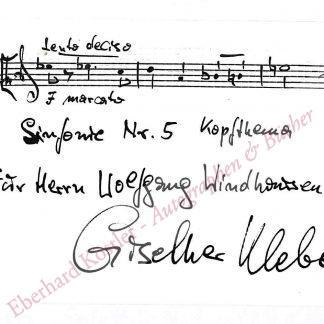 lento deciso
f marcato
Sinfonie Nr. 5 Kopfthema
für Herrn Wolfgang Windhausen
Giselher Klebe
Eberhard Köstler - Autographen & Bücher